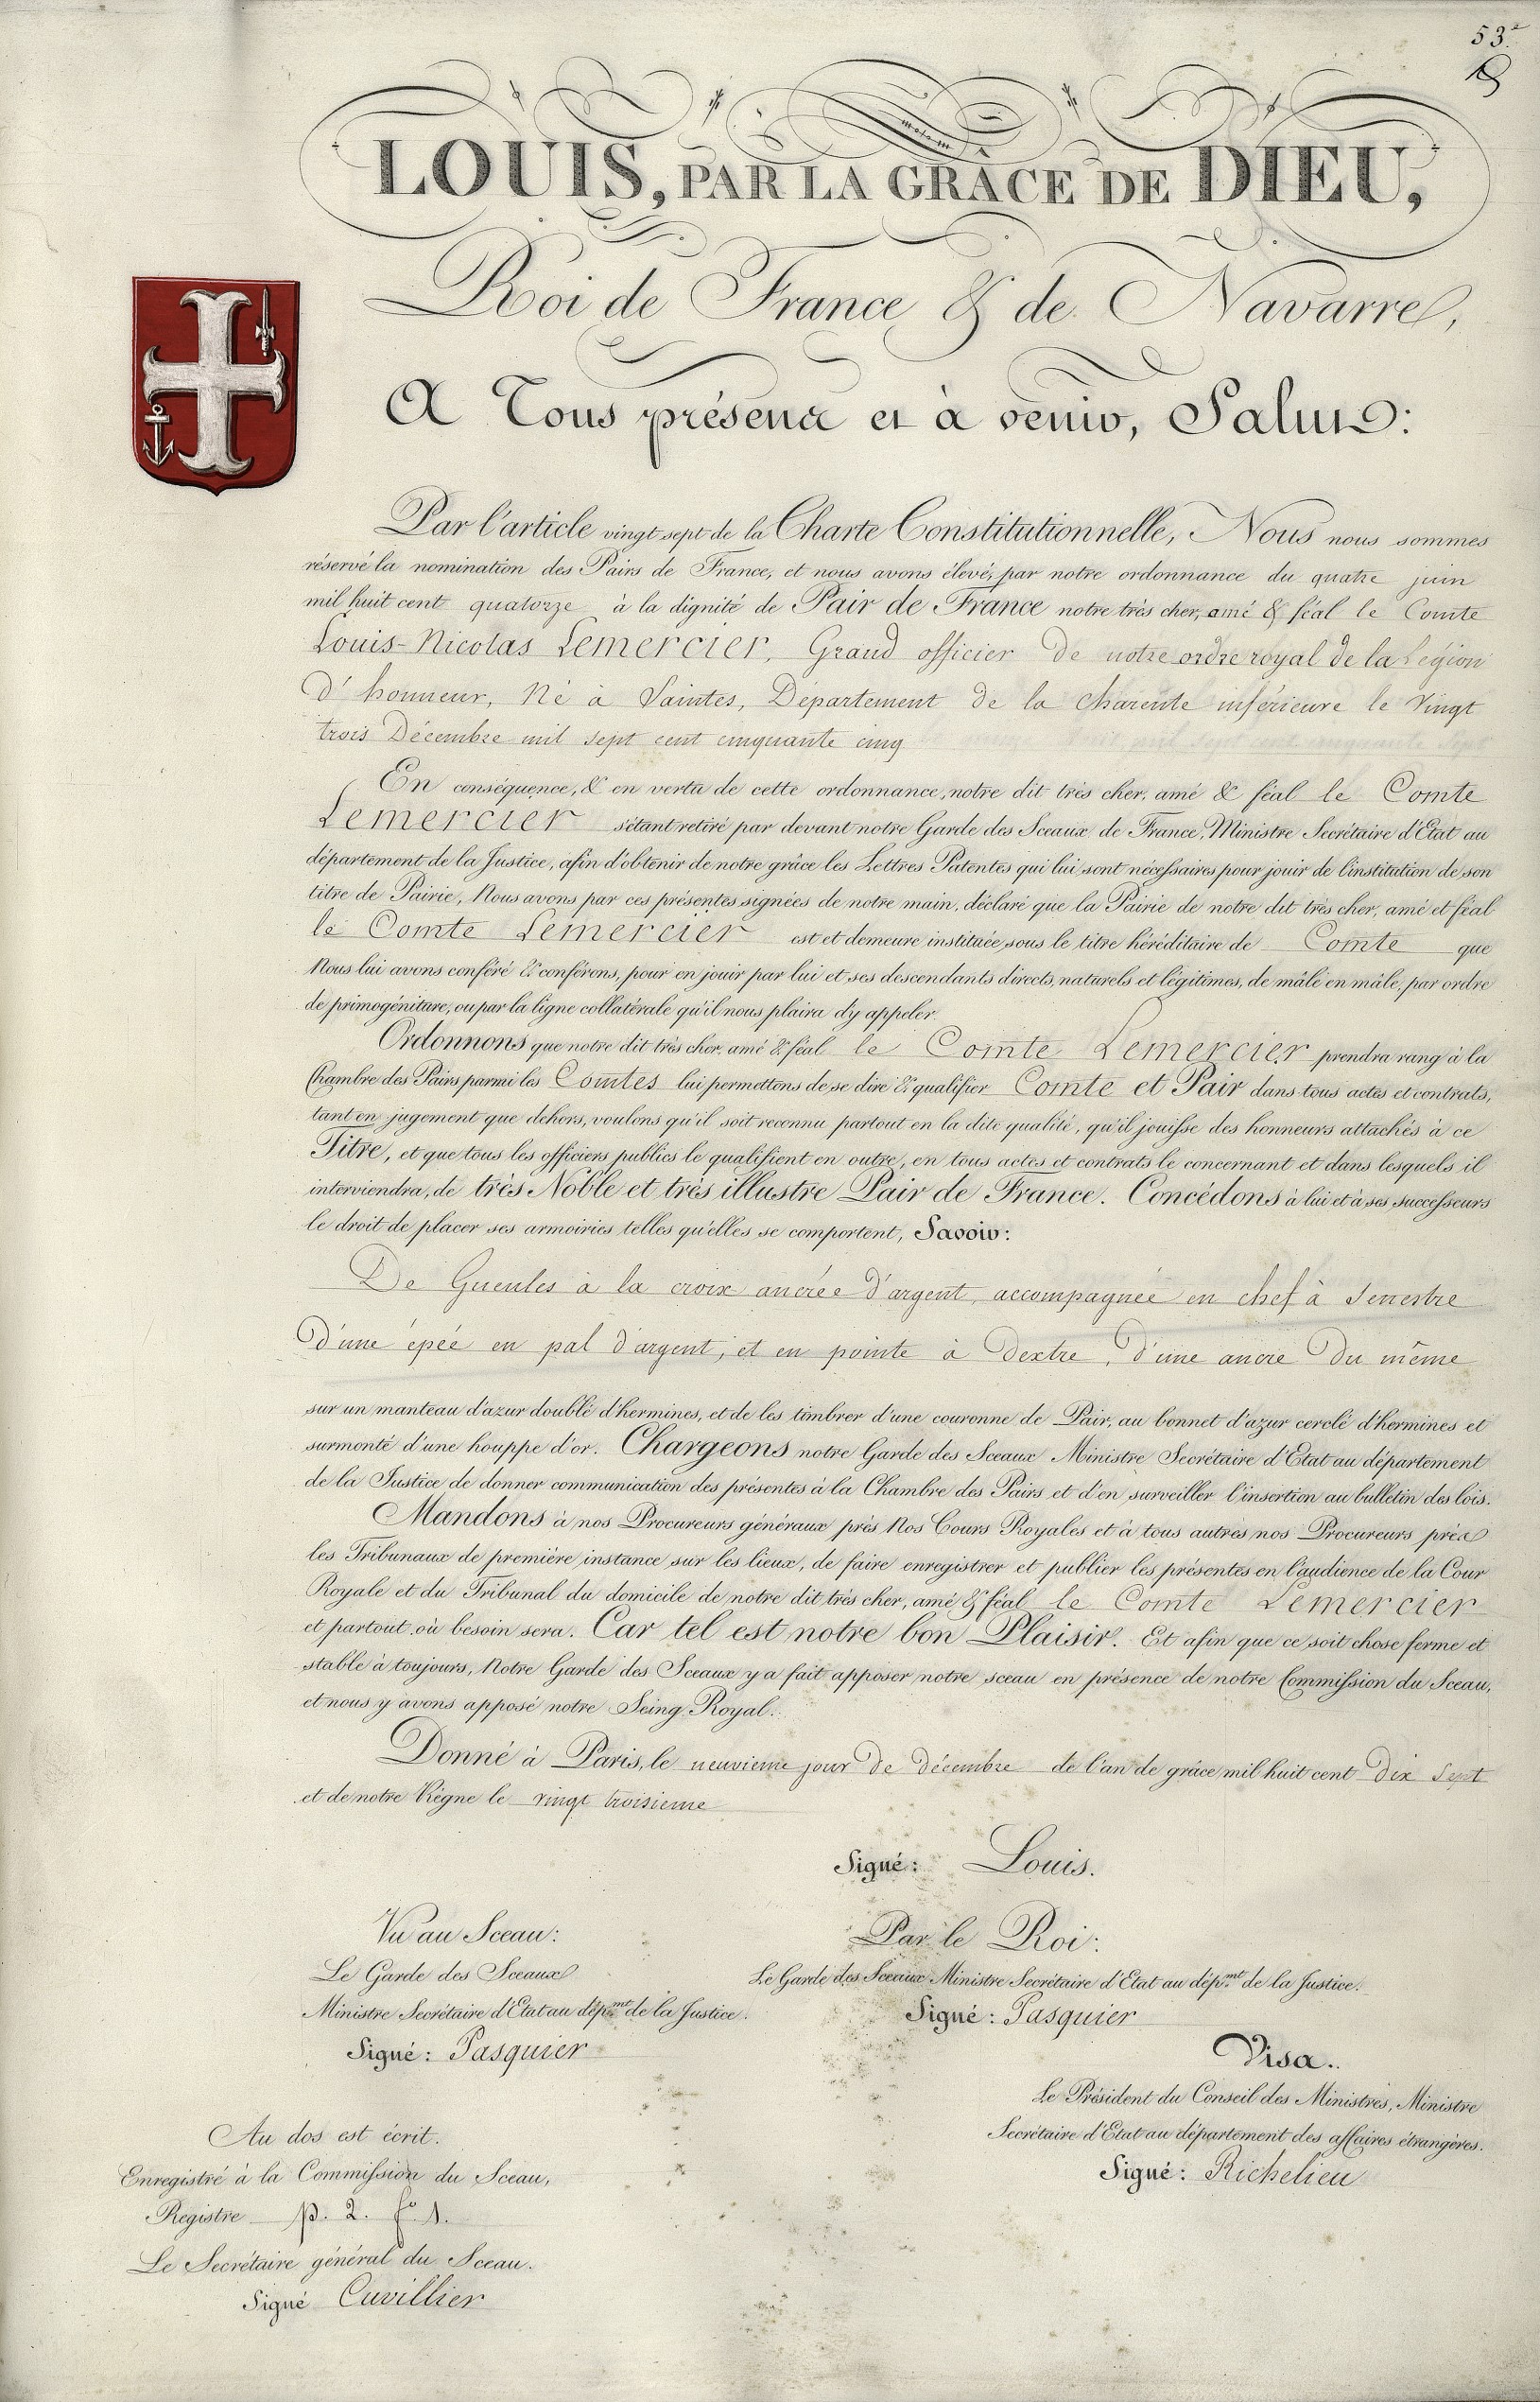 53.e
LOUIS, PAR LA GRÂCE DE DIEU,
Roi de France & de Navarre,
A Tous présens et à venir, Salut:
Par l'article vingt sept de la Charte Constitutionnelle, Nous nous sommes
réservé la nomination des Pairs de France, et nous avons élevé, par notre ordonnance du quatre juin
mil huit cent quatorze à la dignité de Pair de France notre très cher, amé & féal le Comte
Louis-Nicolas Lemercier, Grand officier De notre ordre royal de la Légion
D'honneur, Né à Saintes, Département De la Charente inférieure le Vingt
trois Décembre mil sept cent cinquante cinq
En conséquence, & en vertu de cette ordonnance, notre dit très cher, amé & féal le Comte
Lemercier s'étant retiré par devant notre Garde des Sceaux de France, Ministre Secrétaire d'Etat au
département de la Justice, afin d'obtenir de notre grâce les Lettres Patentes qui lui sont nécessaires pour jouir de l'institution de son
titre de Pairie, Nous avons par ces présentes signées de notre main, déclaré que la Pairie de notre dit très cher, amé et féal
le Comte Lemercier est et demeure instituée sous le titre héréditaire de Comte que
Nous lui avons conféré & conférons, pour en jouir par lui et ses descendants directs, naturels et légitimes, de mâle en mâle, par ordre
de primogéniture, ou par la ligne collatérale qu'il nous plaira d'y appeler.
Ordonnons que notre dit très cher, amé & féal le Comte Lemercier prendra rang à la
Chambre des Pairs parmi les Comtes lui permettons de se dire & qualifier Comte et Pair dans tous actes et contrats,
tant en jugement que dehors, voulons qu'il soit reconnu partout en la dite qualité, qu'il jouisse des honneurs attachés à ce
Titre, et que tous les officiers publics le qualifient en outre, en tous actes et contrats le concernant et dans lesquels il
interviendra, de très Noble et très illustre Pair de France. Concédons à lui et à ses successeurs
le droit de placer ses armoiries telles qu'elles se comportent, Savoir:
De Gueules à la croix ancrée D'argent, accompagnée en chef à Senestre
D'une épée en pal D'argent, et en pointe à Dextre, D'une ancre Du même
sur un manteau d'azur doublé d'hermines, et de les timbrer d'une couronne de Pair, au bonnet d'azur cerclé d'hermines et
surmonté d'une houppe d'or. Chargeons notre Garde des Sceaux Ministre Secrétaire d'Etat au département
de la Justice de donner communication des présentes à la Chambre des Pairs et d'en surveiller l'insertion au bulletin des lois.
Mandons à nos Procureurs généraux près Nos Cours Royales et à tous autres nos Procureurs près
les Tribunaux de première instance sur les lieux, de faire enregistrer et publier les présentes en l'audience de la Cour
Royale et du Tribunal du domicile de notre dit très cher, amé & féal le Comte Lemercier
et partout où besoin sera. Car tel est notre bon Plaisir. Et afin que ce soit chose ferme et
stable à toujours, Notre Garde des Sceaux y a fait apposer notre sceau en présence de notre Commission du Sceau,
et nous y avons apposé notre Seing Royal.
Donné à Paris, le neuvieme jour De décembre de l'an de grâce mil huit cent Dix Sept
et de notre Règne le vingt troisieme
Signé: Louis.
Vu au Sceau:
Le Garde des Sceaux
Ministre Secrétaire d'Etat au dép.mt de la Justice.
Signé: Pasquier
Par le Roi:
Le Garde des Sceaux Ministre Secrétaire d'Etat au dép.mt de la Justice.
Signé: Pasquier
Visa.
Le Président du Conseil des Ministres, Ministre
Secrétaire d'Etat au département des affaires étrangères.
Signé: Richelieu
Au dos est écrit.
Enregistré à la Commission du Sceau,
Registre p. 2. fo. 1.
Le Secrétaire général du Sceau.
Signé Cuvillier